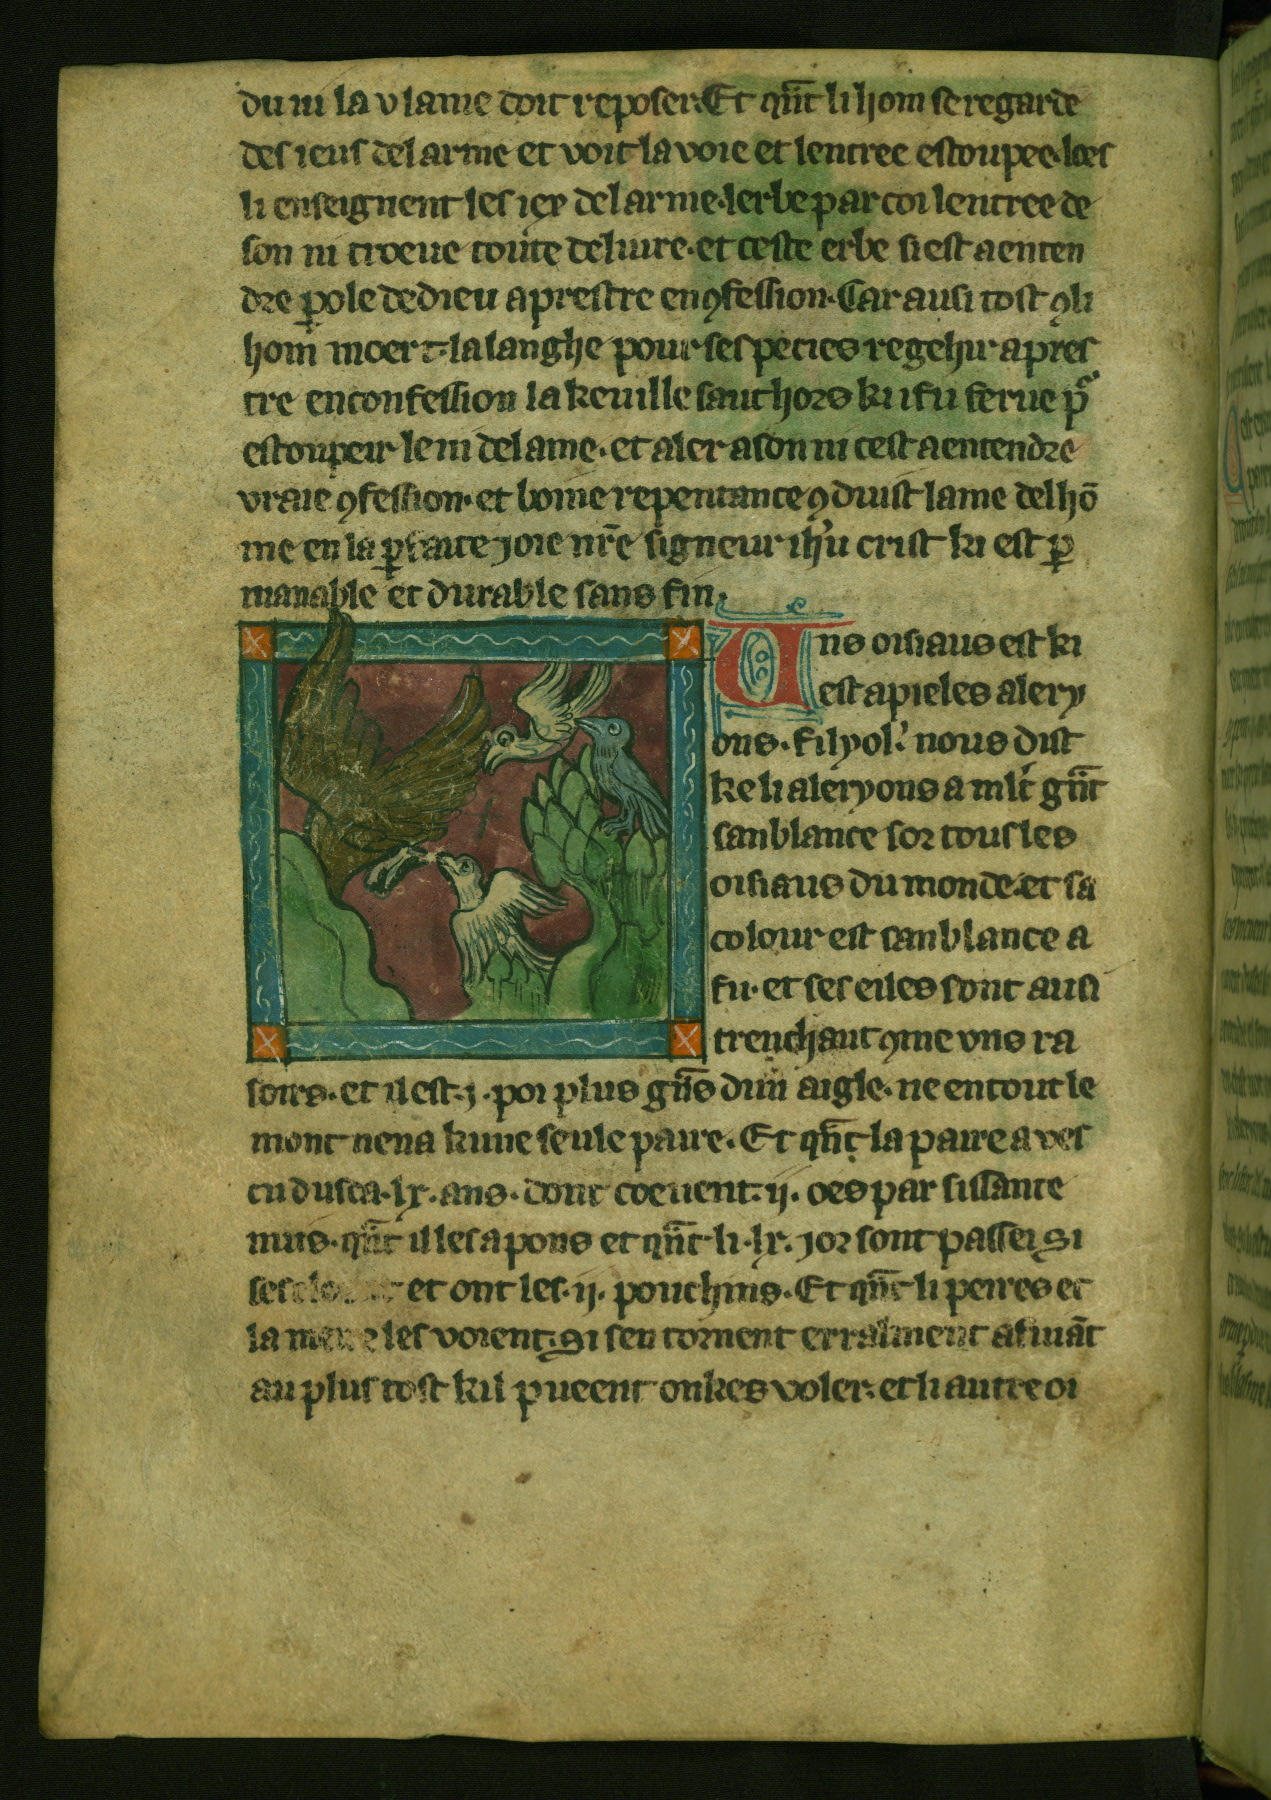 du ni la v lame doit reposer. Et qñt li hom se regarde
des ieus del arme et voit la voie et lentree estoupee. lors
li enseignent les iex del arme. lerbe par coi lentree de
son ni troeue toute deliure. et ceste erbe si est a enten
dre ꝑole de dieu a prestre en ꝯfession. Car ausi tost ꝯ li
hom moet la langhe pour ses pecies regehir a pres
tre en confession la keuille saut hors ki i fu ferue pͬ
estoupeir le ni del ame. et aler a son ni cest a entendre
vraie ꝯfession. et boine repentance ꝯduist lame del hō
me en la ꝑfaite joie nr̄e signeur ih'u crist ki est ꝑ
manable et durable sans fin.
Uns oisiaus est ki
est apieles alery
ons. filyol' nous dist
ke li aleryons a ml't gñt
sanblance sor tous les
oisiaus du monde. et sa
colour est sanblance a
fu. et ses eiles sont ausi
trenchant ꝯme uns ra
soirs. et il est .j. poi plus gñs dun aigle. ne en tout le
mont nen a kune seule paire. Et qñt la paire a ves
cu dusca .lx. ans. dont coeuent .ij. oes par sissante
iiuis. qñt il les a pons et qñt li .lx. jor sont passei si
et ont les .ij. pouchins. Et qñt li peires et
la mere les voient. si sen tornent erralment a fuiāt
au plus tost kil pueent onkes voler. et li autre oi